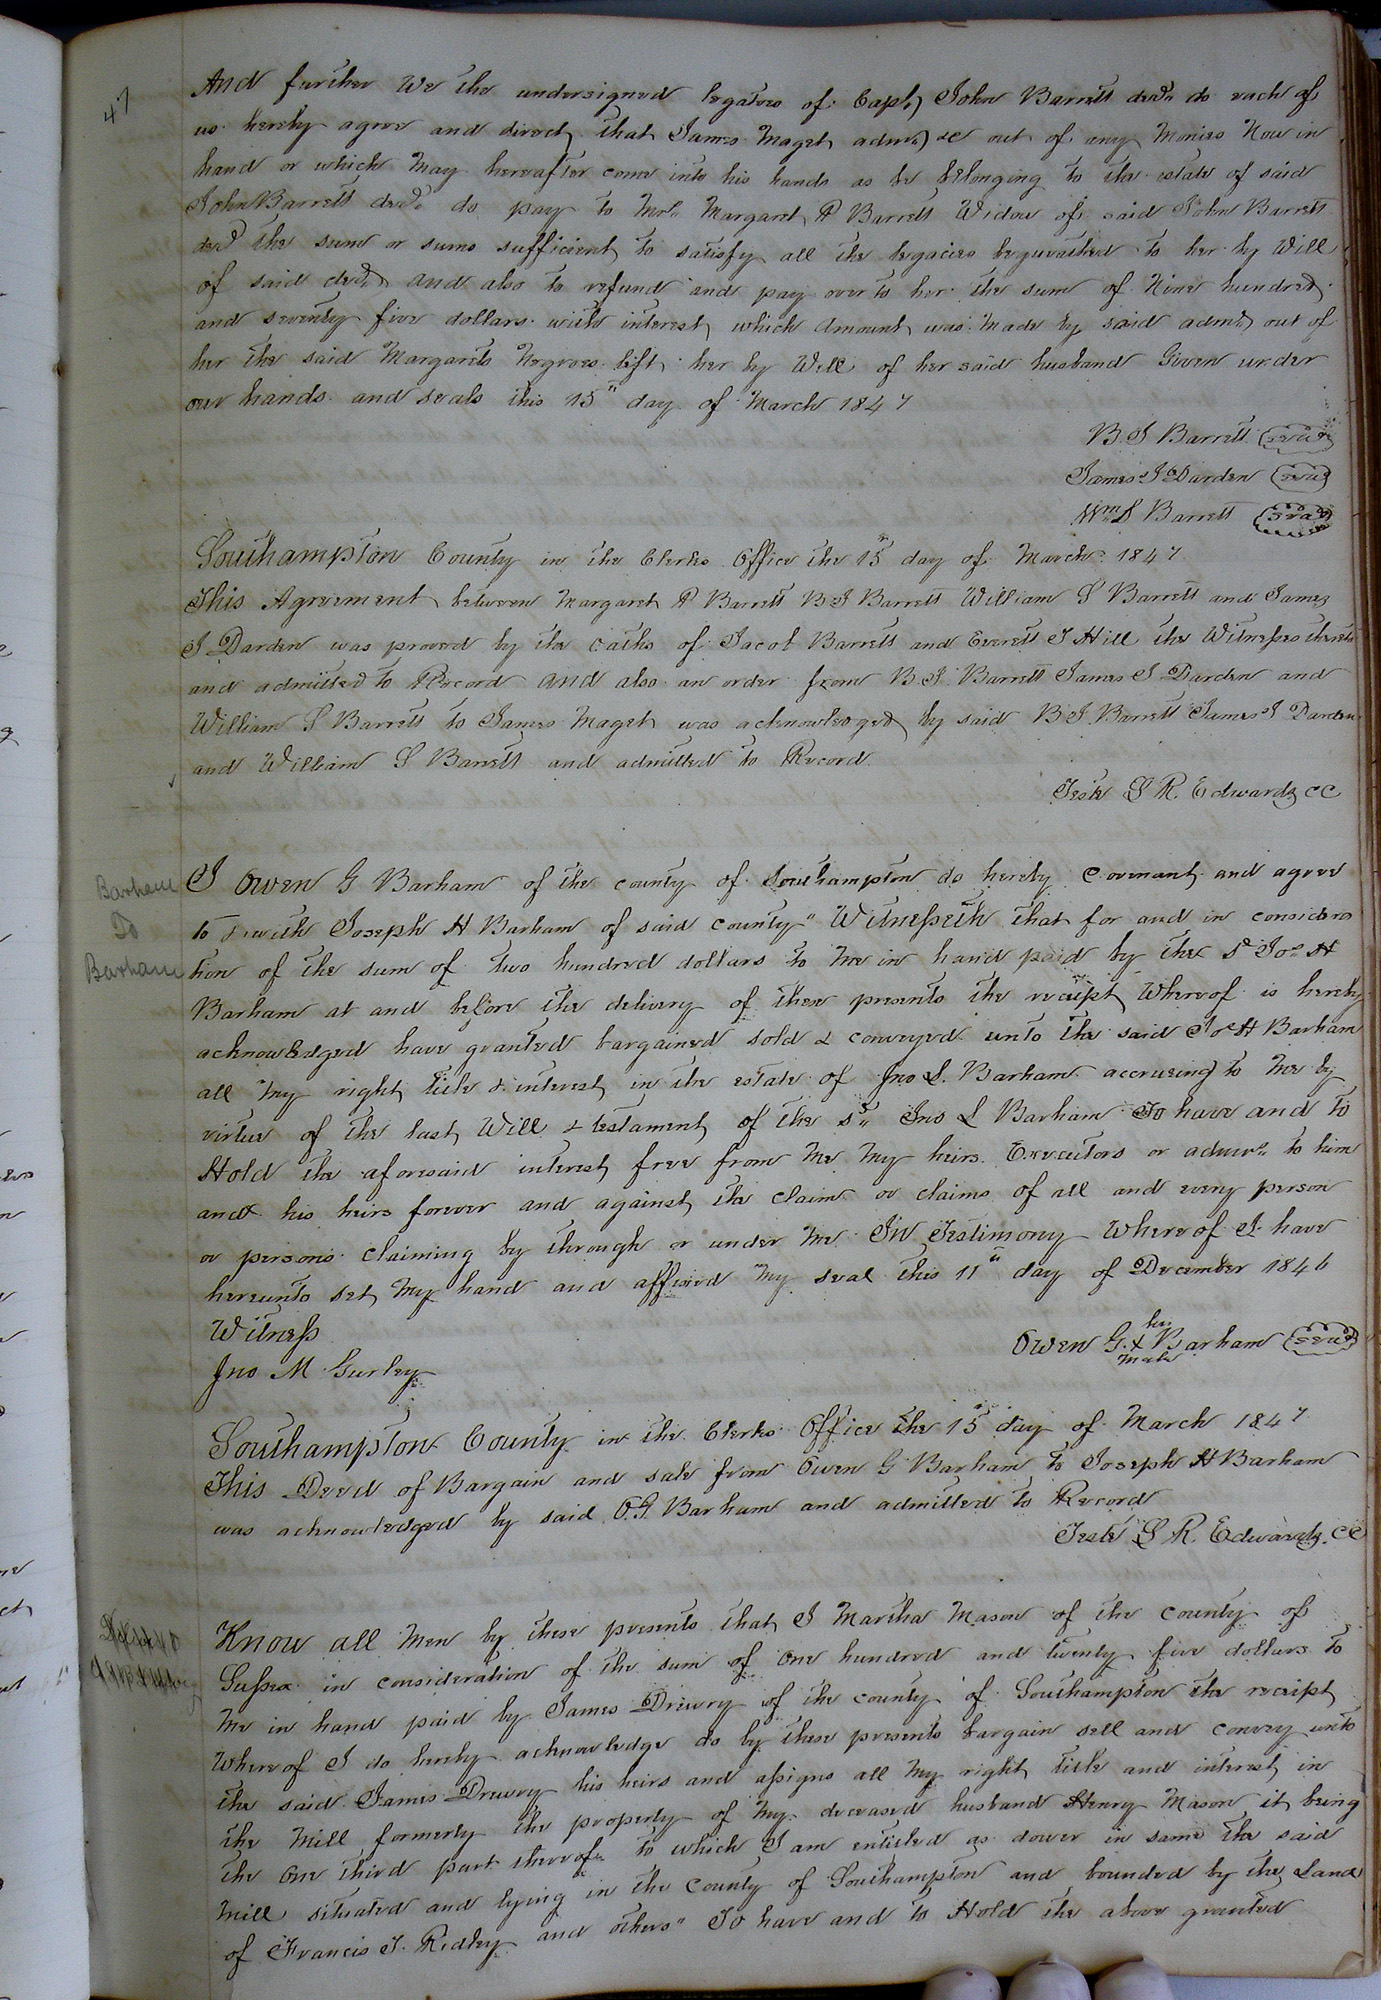 47
And further We the undersigned legatees of Capt, John Barrett decd. do each of
us hereby agree and direct that James Maget admr. &c out of any Monies Now in
hand or which May hereafter come into his hands as be belonging to the estate of said
John Barrett decd. do pay to Mrs. Margaret R Barrett Widow of said John Barrett
decd the sum or sums sufficient to satisfy all the legacies bequeathed to her by Will
of said decd. and also to refund and pay over to her the sum of Nine hundred
and seventy five dollars with interest which Amount was Made by said admr. out of
her the said Margarets Negroes left her by Will of her said husband Given under
our hands and seals this 15th day of March 1847
B. J Barrett seal
James J Darden seal
Wm S Barrett seal
Southampton County in the Clerks Office the 15th day of March 1847
This Agreement between Margaret R Barrett B J Barrett William S Barrett and James
J Darden was proved by the oaths of Jacob Barrett and Everett J Hill the Witnesses thereto
and admitted to Record and also an order from B. J. Barrett James J Darden and
William S Barrett to James Maget was acknowledged by said B J Barrett James J Darden
and William S Barrett and admitted to Record
Teste L R. Edwards CC
Barham
To
Barham
I Owen G Barham of the county of Southampton do hereby Covenant and agree
to & with Joseph H Barham of said county " Witnesseth that for and in considera
tion of the sum of two hundred dollars to Me in hand paid by the sd Jos H
Barham at and before the delivery of these presents the receipt Whereof is hereby
acknowledged have granted bargained sold & conveyed unto the said Jos H Barham
all My right title & interest in the estate of Jno L. Barham accrueing to Me by
virtue of the last Will & testament of the sd. Jno L Barham To have and To
Hold the aforesaid interest free from Me My heirs Executors or admrs. to him
and his heirs forever and against the claim or claims of all and every person
or persons claiming by through or under Me In Testimony Whereof I have
hereunto set My hand and affixed My seal this 11th day of December 1846
Witness
Jno M Gurley
his
Owen G. X Barham seal
Mark
Southampton County in the Clerks Office the 15th day of March 1847
This Deed of Bargain and sale from Owen G Barham to Joseph H Barham
was acknowledged by said O. G Barham and admitted to Record
Teste L R. Edwards. CC
Know all Men by these presents that I Martha Mason of the county of
Sussex in consideration of the sum of One hundred and twenty five dollars to
Me in hand paid by James Drewry of the county of Southampton the receipt
Whereof I do hereby acknowledge do by these presents bargain sell and convey unto
the said James Drewry his heirs and assigns all My right title and interest in
the Mill formerly the property of My deceased husband Henry Mason it being
the One third part thereof to which I am entitled as dower in same the said
Mill situated and lying in the county of Southampton and bounded by the Land
of Francis T. Ridley and others" To have and to Hold the above granted